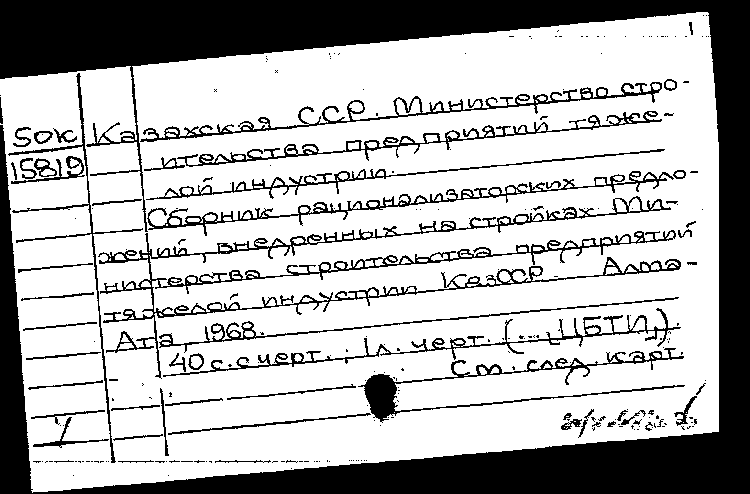 50к Казахская ССР. Министерство стро-
15819 ительства предприятий тяже-
лой индустрии.
Сборник рационализаторских предло-
жений, внедренных на стройках Ми-
нистерства строительства предприятий
тяжелой индустрии КазССР. Алма-
Ата, 1968.
40 с. с черт.; 1 л. черт. (..., ЦБТИ,).
См. след. карт.